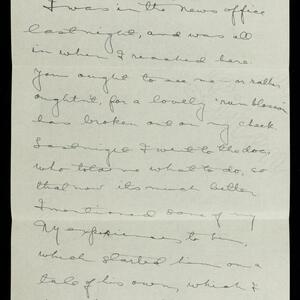 I was in the news office
last night, and was all
in when I reached here.
You ought to see me - or rather
oughtn't, for a lovely "rum blossom"
has broken out on my cheek
Last night I went to the doc,
who told me what to do, so
that now it's much better
I mentioned some of my
N.Y. experiences to him,
which started him on a
tale of his own, which I